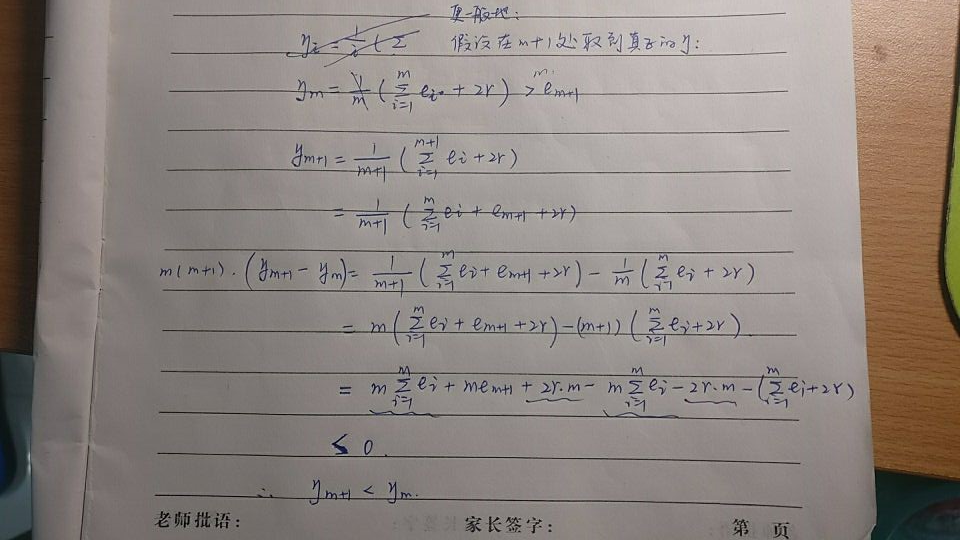 更一般地:
y_i = 1/i (Σ
假设在 m+1 处取到真正的 y:
y_m = 1/m (Σ_{i=1}^{m} e_i + 2r) > e_{m+1}
y_{m+1} = 1/(m+1) (Σ_{i=1}^{m+1} e_i + 2r)
= 1/(m+1) (Σ_{i=1}^{m} e_i + e_{m+1} + 2r)
m(m+1)·(y_{m+1} - y_m) = 1/(m+1) (Σ_{i=1}^{m} e_i + e_{m+1} + 2r) - 1/m (Σ_{i=1}^{m} e_i + 2r)
= m(Σ_{i=1}^{m} e_i + e_{m+1} + 2r) - (m+1)(Σ_{i=1}^{m} e_i + 2r)
= m Σ_{i=1}^{m} e_i + m e_{m+1} + 2r·m - m Σ_{i=1}^{m} e_i - 2r·m - (Σ_{i=1}^{m} e_i + 2r)
≤ 0.
∴ y_{m+1} < y_m.
老师批语: 家长签字: 第 页